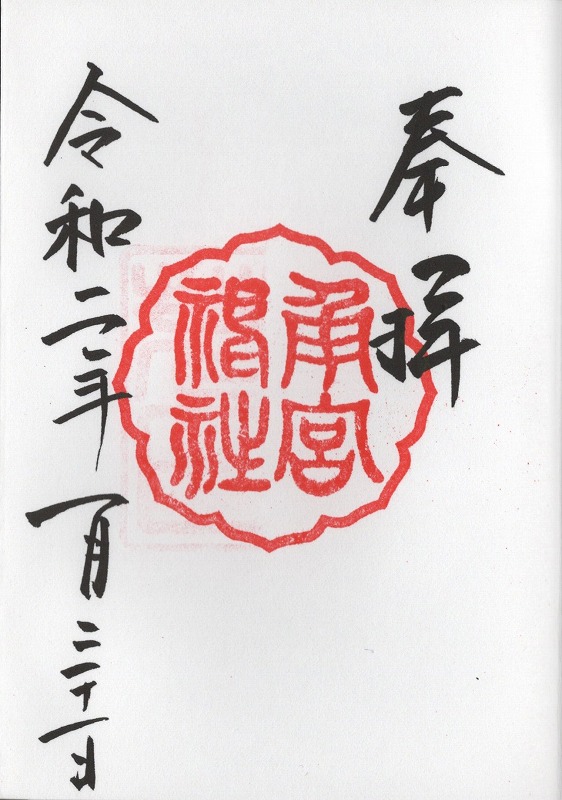 奉拝
角宮
神社
令和二年一月三十一日